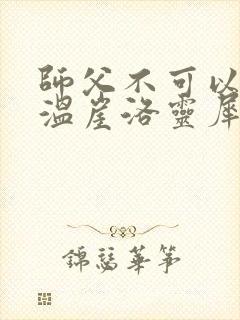 師父不可以
溫崖洛靈犀
錦瑟華箏